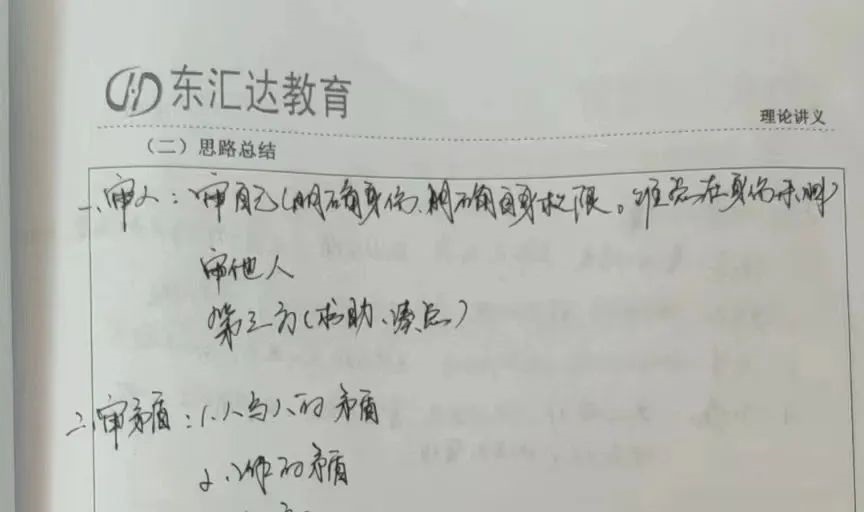 东汇达教育
理论讲义
（二）思路总结
一、审人：审自己（明确身份、明确自身权限。难点在身份不明）
审他人
第三方（求助、凑点）
二、审矛盾：1.人与人的矛盾
2.工作的矛盾